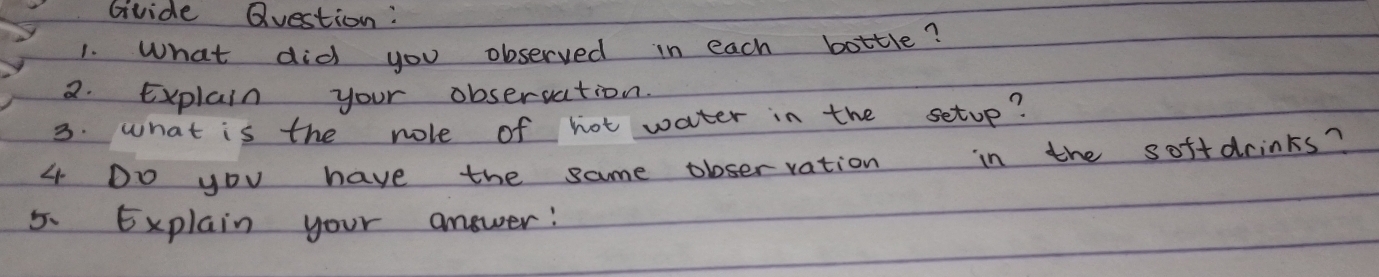 Guide Question:
1. What did you observed in each bottle?
2. Explain your observation.
3. what is the role of hot water in the setup?
4 Do you have the same observation in the softdrinks?
5. Explain your answer: